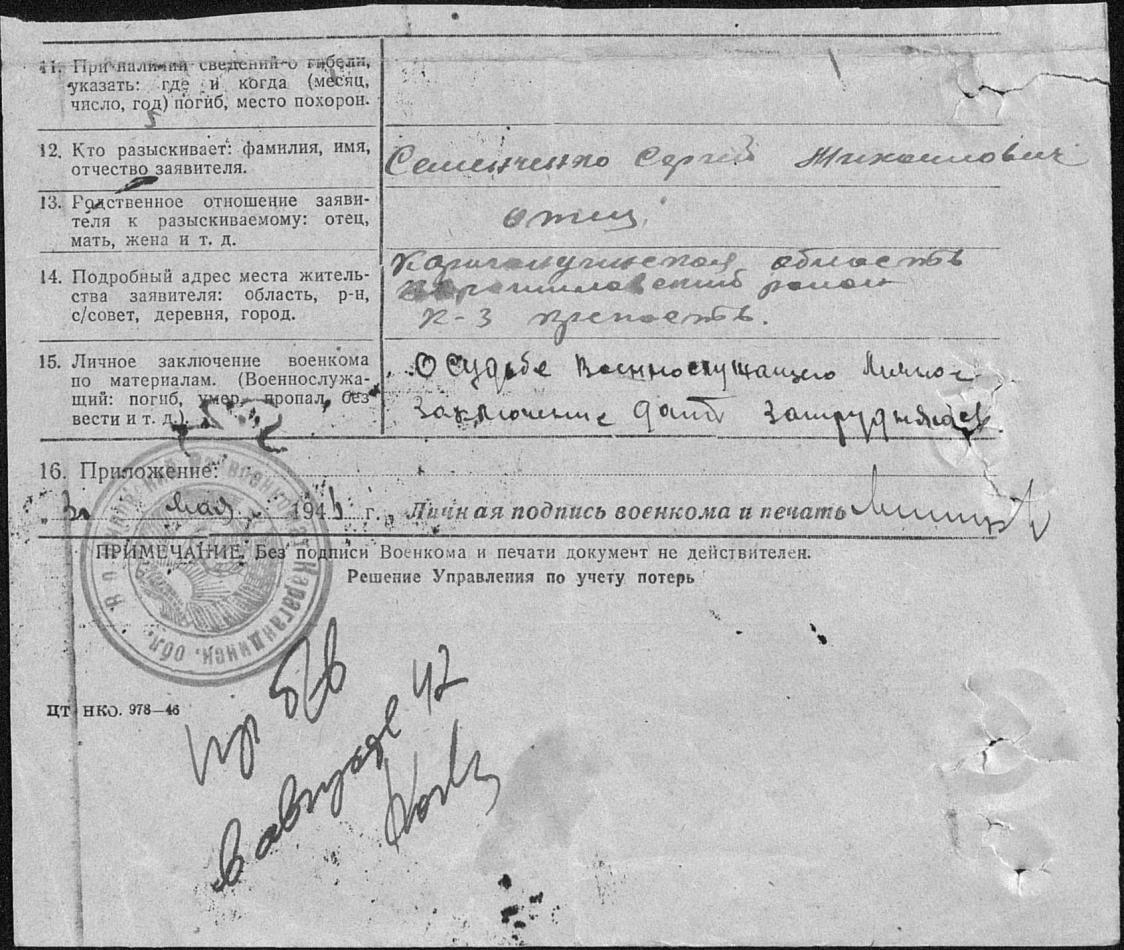 11. При наличии сведений о гибели,
указать: где и когда (месяц,
число, год) погиб, место похорон.
12. Кто разыскивает: фамилия, имя,
отчество заявителя.
Семенченко Сергей Михаилович
13. Родственное отношение заяви-
теля к разыскиваемому: отец,
мать, жена и т. д.
отец
14. Подробный адрес места житель-
ства заявителя: область, р-н,
с/совет, деревня, город.
область
Ворошиловский район
К-3 крепость.
15. Личное заключение военкома
по материалам. (Военнослужа-
щий: погиб, умер, пропал без
вести и т. д.)
О судьбе Военнослужащего Личное
Заключение дать Затрудняюсь.
16. Приложение:
мая 194 г. Личная подпись военкома и печать
ПРИМЕЧАНИЕ. Без подписи Военкома и печати документ не действителен.
Решение Управления по учету потерь
Карагандинск. обл.
ЦТ НКО. 978—46
пр б/в
в августе 42